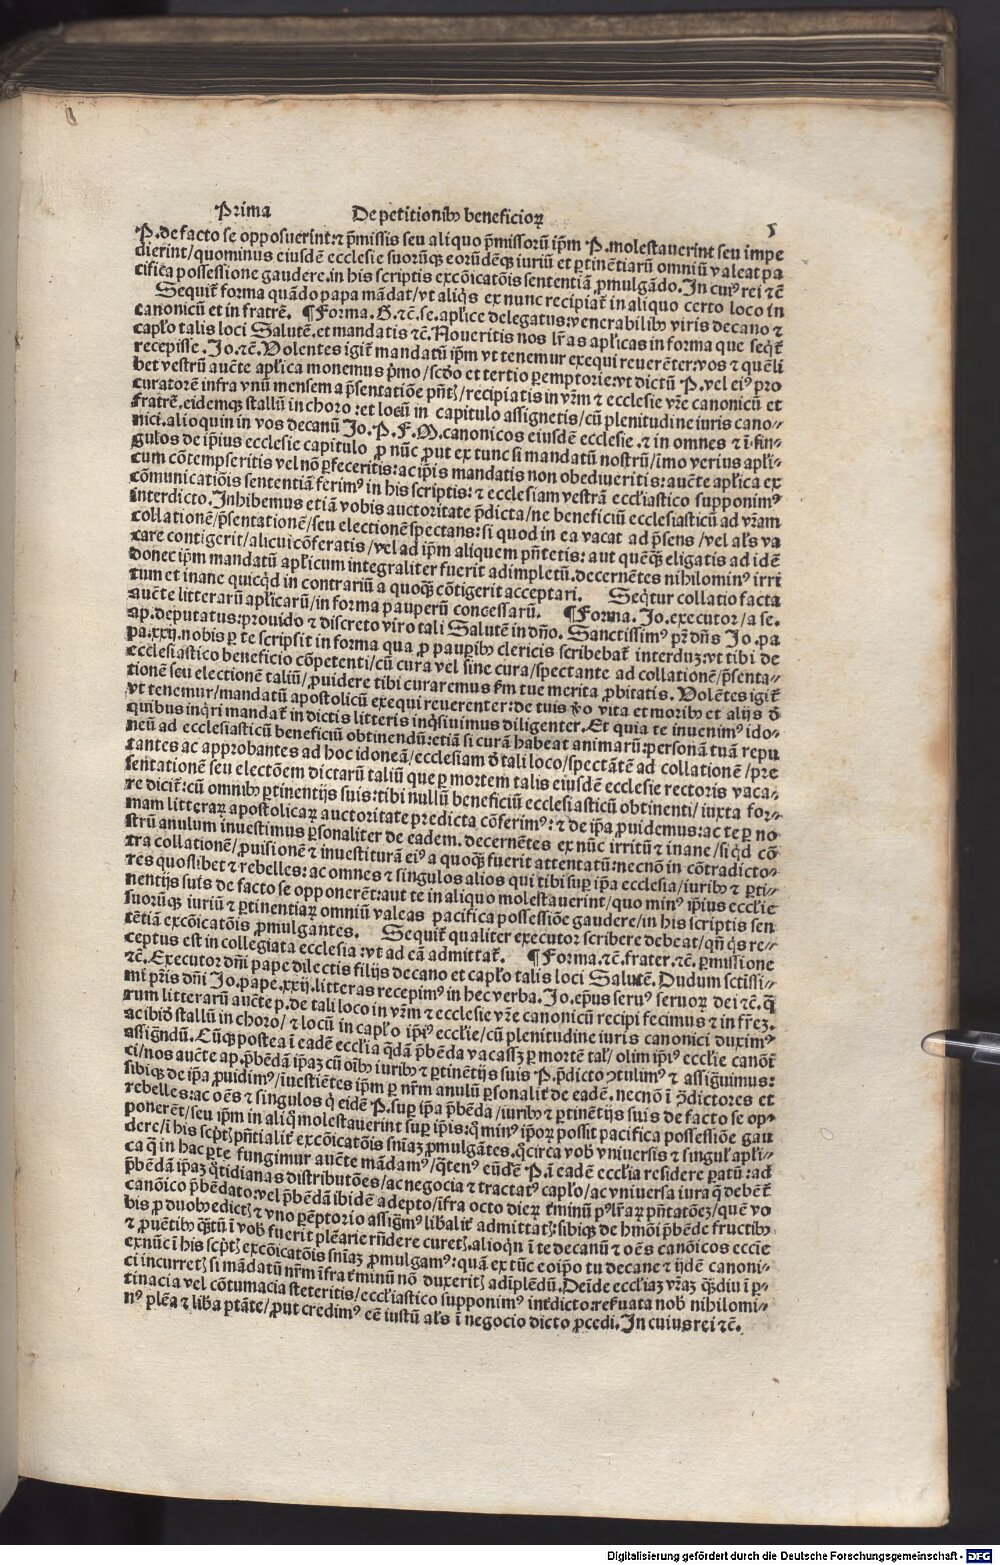 Prima De petitionibꝰ beneficioꝝ 5
P. de facto se opposuerint: ⁊ p̄missis seu aliquo p̄missorū ip̄m P. molestauerint seu impe
dierint/quominus eiusdē ecclesie suorūqꝫ eorūdēqꝫ iuriū et ꝑtinētiarū omniū valeat pa
cifica possessione gaudere. in his scriptis excōicatōis sententiā ꝓmulgādo. In cuiꝰ rei ⁊c̄
Sequit᷑ forma quādo papa mādat/vt aliqͥs ex nunc recipiat᷑ in aliquo certo loco in
canonicū et in fratrē. ¶Forma. G. ⁊c̄. se. apl̄ice delegatus: venerabilibꝰ viris decano ⁊
capl̄o talis loci Salutē. et mandatis ⁊c̄. Noueritis nos l̄r̄as apl̄icas in forma que seqͥt᷑
recepisse. Jo. ⁊c̄. Volentes igit᷑ mandatū ip̄m vt tenemur exequi reuerēter: vos ⁊ quēli
bet vestrū auc̄te apl̄ica monemus pͥmo/scd̄o et tertio ꝑemptorie: vt dictū P. vel eiꝰ pro
curatorē infra vnū mensem a p̄sentatiōe pn̄tꝭ/recipiatis in vr̄m ⁊ ecclesie vr̄e canonicū et
fratrē. eidemqꝫ stallū in choro: et locū in capitulo assignetis/cū plenitudine iuris cano⸗
nici. alioquin in vos decanū Jo. P. F. M. canonicos eiusdē ecclesie. ⁊ in omnes ⁊ ī sin⸗
gulos de ip̄ius ecclesie capitulo ꝓ nūc ꝓut ex tunc si mandatū nostrū/imo verius apl̄i⸗
cum cōtempseritis vel nō ꝑfeceritis: ac ip̄is mandatis non obediueritis: auc̄te apl̄ica ex
cōmunicatiōis sententiā ferimꝰ in his scriptis: ⁊ ecclesiam vestrā eccl̄iastico supponimꝰ
interdicto. Inhibemus etiā vobis auctoritate p̄dicta/ne beneficiū ecclesiasticū ad vr̄am
collationē/p̄sentationē/seu electionē spectans: si quod in ea vacat ad p̄sens/vel al̄s va
care contigerit/alicui cōferatis/vel ad ip̄m aliquem pn̄tetis: aut quēqꝫ eligatis ad idē
donec ip̄m mandatū apl̄icum integraliter fuerit adimpletū. decernētes nihilominꝰ irri
tum et inane quicqͥd in contrariū a quoqꝫ cōtigerit acceptari. Seqͥtur collatio facta
auc̄te litterarū apl̄icarū/in forma pauperū concessarū. ¶Forma. Jo. executor/a se.
ap. deputatus: prouido ⁊ discreto viro tali Salutē in dn̄o. Sanctissimꝰ pr̄ dn̄s Jo. pa
pa. xxij. nobis ꝑ te scripsit in forma qua ꝓ pauꝑibꝰ clericis scribebat᷑ interduꝫ: vt tibi de
ecclesiastico beneficio cōpetenti/cū cura vel sine cura/spectante ad collationē/p̄senta⸗
tionē seu electionē taliū/ꝓuidere tibi curaremus ẜm tue merita ꝓbitatis. Volētes igit᷑
vt tenemur/mandatū apostolicū exequi reuerenter: de tuis v̄o vita et moribꝰ et alijs đ
quibus inqͥri mandat᷑ in dictis litteris inqͥsiuimus diligenter. Et quia te inuenimꝰ ido⸗
neū ad ecclesiasticū beneficiū obtinendū: etiā si curā habeat animarū: personā tuā repu
tantes ac approbantes ad hoc idoneā/ecclesiam đ tali loco/spectātē ad collationē/pre
sentationē seu electōem dictarū taliū que ꝑ mortem talis eiusdē ecclesie rectoris vaca⸗
re dicit᷑: cū omnibꝰ ꝑtinentijs suis: tibi nullū beneficiū ecclesiasticū obtinenti/iuxta for⸗
mam litteraꝝ apostolicaꝝ auctoritate predicta cōferimꝰ: ⁊ de ip̄a ꝓuidemus: ac te ꝑ no
strū anulum inuestimus ꝑsonaliter de eadem. decernētes ex nūc irritū ⁊ inane/siqͥd cō
tra collationē/ꝓuisionē ⁊ inuestiturā eiꝰ a quoqꝫ fuerit attentatū: necnō in cōtradicto⸗
res quoslibet ⁊ rebelles: ac omnes ⁊ singulos alios qui tibi suꝑ ip̄a ecclesia/iuribꝰ ⁊ ꝑti⸗
nentijs suis de facto se opponerēt: aut te in aliquo molestauerint/quo minꝰ ip̄ius eccl̄ie
suorūqꝫ iuriū ⁊ ꝑtinentiaꝝ omniū valeas pacifica possessiōe gaudere/in his scriptis sen
tētiā excōicatōis ꝓmulgantes. Sequit᷑ qualiter executor scribere debeat/qn̄ qͥs re⸗
ceptus est in collegiata ecclesia: vt ad eā admittat᷑. ¶Forma. ⁊c̄. frater. ⁊c̄. ꝑmissione
⁊c̄. Executor dn̄i pape dilectis filijs decano et capl̄o talis loci Salutē. Dudum sctīssi⸗
mi pr̄is dn̄i Jo. pape. xxij. litteras recepimꝰ in hec verba. Jo. ep̄us seruꝰ seruoꝝ dei ⁊c̄. qͣ
rum litterarū auc̄te p. de tali loco in vr̄m ⁊ ecclesie vr̄e canonicū recipi fecimus ⁊ in fr̄eꝫ.
ac ibiđ stallū in choro/⁊ locū in capl̄o ip̄iꝰ eccl̄ie/cū plenitudine iuris canonici duximꝰ
assignādū. Cūqꝫ postea ī eadē eccl̄ia qͣdā p̄bēda vacassꝫ ꝑ mortē tal̄/olim ip̄iꝰ eccl̄ie canōi
ci/nos auc̄te ap. p̄bēdā ip̄aꝫ cū oībꝰ iuribꝰ ⁊ ꝑtinētijs suis P. p̄dicto ꝯtulimꝰ ⁊ assignuimus:
sibiqꝫ de ip̄a ꝓuidimꝰ/īuestiētes ip̄m ꝑ nr̄m anulū ꝑsonalit᷑ de eadē. necnō ī ꝯ̄dictores et
rebelles: ac oēs ⁊ singulos qͥ eidē P. suꝑ ip̄a p̄bēda/iuribꝰ ⁊ ꝑtinētijs suis de facto se op⸗
ponerēt/seu ip̄m in aliqͦ molestauerint suꝑ ip̄is: qͦ minꝰ ip̄oꝝ possit pacifica possessiōe gau
dere/ī his scp̄tꝭ pn̄tialit᷑ excōicatōis sn̄iaꝫ ꝓmulgātes. qͦcirca vob̄ vniuersis ⁊ singul̄ apl̄i⸗
ca qͣ in hac ꝑte fungimur auc̄te mādamꝰ/qͣtenꝰ eūdē P. ī eadē eccl̄ia residere ꝑatū: ad
p̄bēdā ip̄aꝫ qͦtidianas distributōes/ac negocia ⁊ tractatꝰ capl̄o/ac vniuersa iura qͣ debēt᷑
canōico p̄bēdato: vel p̄bēdā ibidē adepto/īfra octo dieꝝ t᷑minū pꝰ lr̄aꝝ pn̄tatōeꝫ/quē vo
bis ꝓ duobꝰ edictꝭ ⁊ vno ꝑēptorio assigmꝰ lib̄alit᷑ admittatꝭ: sibiqꝫ de hmōi p̄bēde fructibꝰ
⁊ ꝓuētibꝰ qͣtū ī vob̄ fuerit plēarie rn̄dere curetꝭ. alioqͥn ī te decanū ⁊ oēs canōicos eccl̄ie
exnūc ī his scp̄tꝭ excōicatōis sn̄iaꝫ ꝓmulgamꝰ: quā ex tūc eoip̄o tu decane ⁊ ijdē canoni⸗
ci incurretꝭ si mādatū nr̄m īfra t᷑minū nō duxeritꝭ adīplēdū. Deīde eccl̄iaꝫ vr̄aꝫ qͣdiu ī ꝑ⸗
tinacia vel cōtumacia steteritis/eccl̄iastico supponimꝰ int᷑dicto: reẜuata nob̄ nihilomi⸗
nꝰ plēa ⁊ liba ptāte/ꝓut credimꝰ eē iustū al̄s ī negocio dicto ꝓcedi. In cuius rei ⁊c̄.
Digitalisierung gefördert durch die Deutsche Forschungsgemeinschaft - DFG